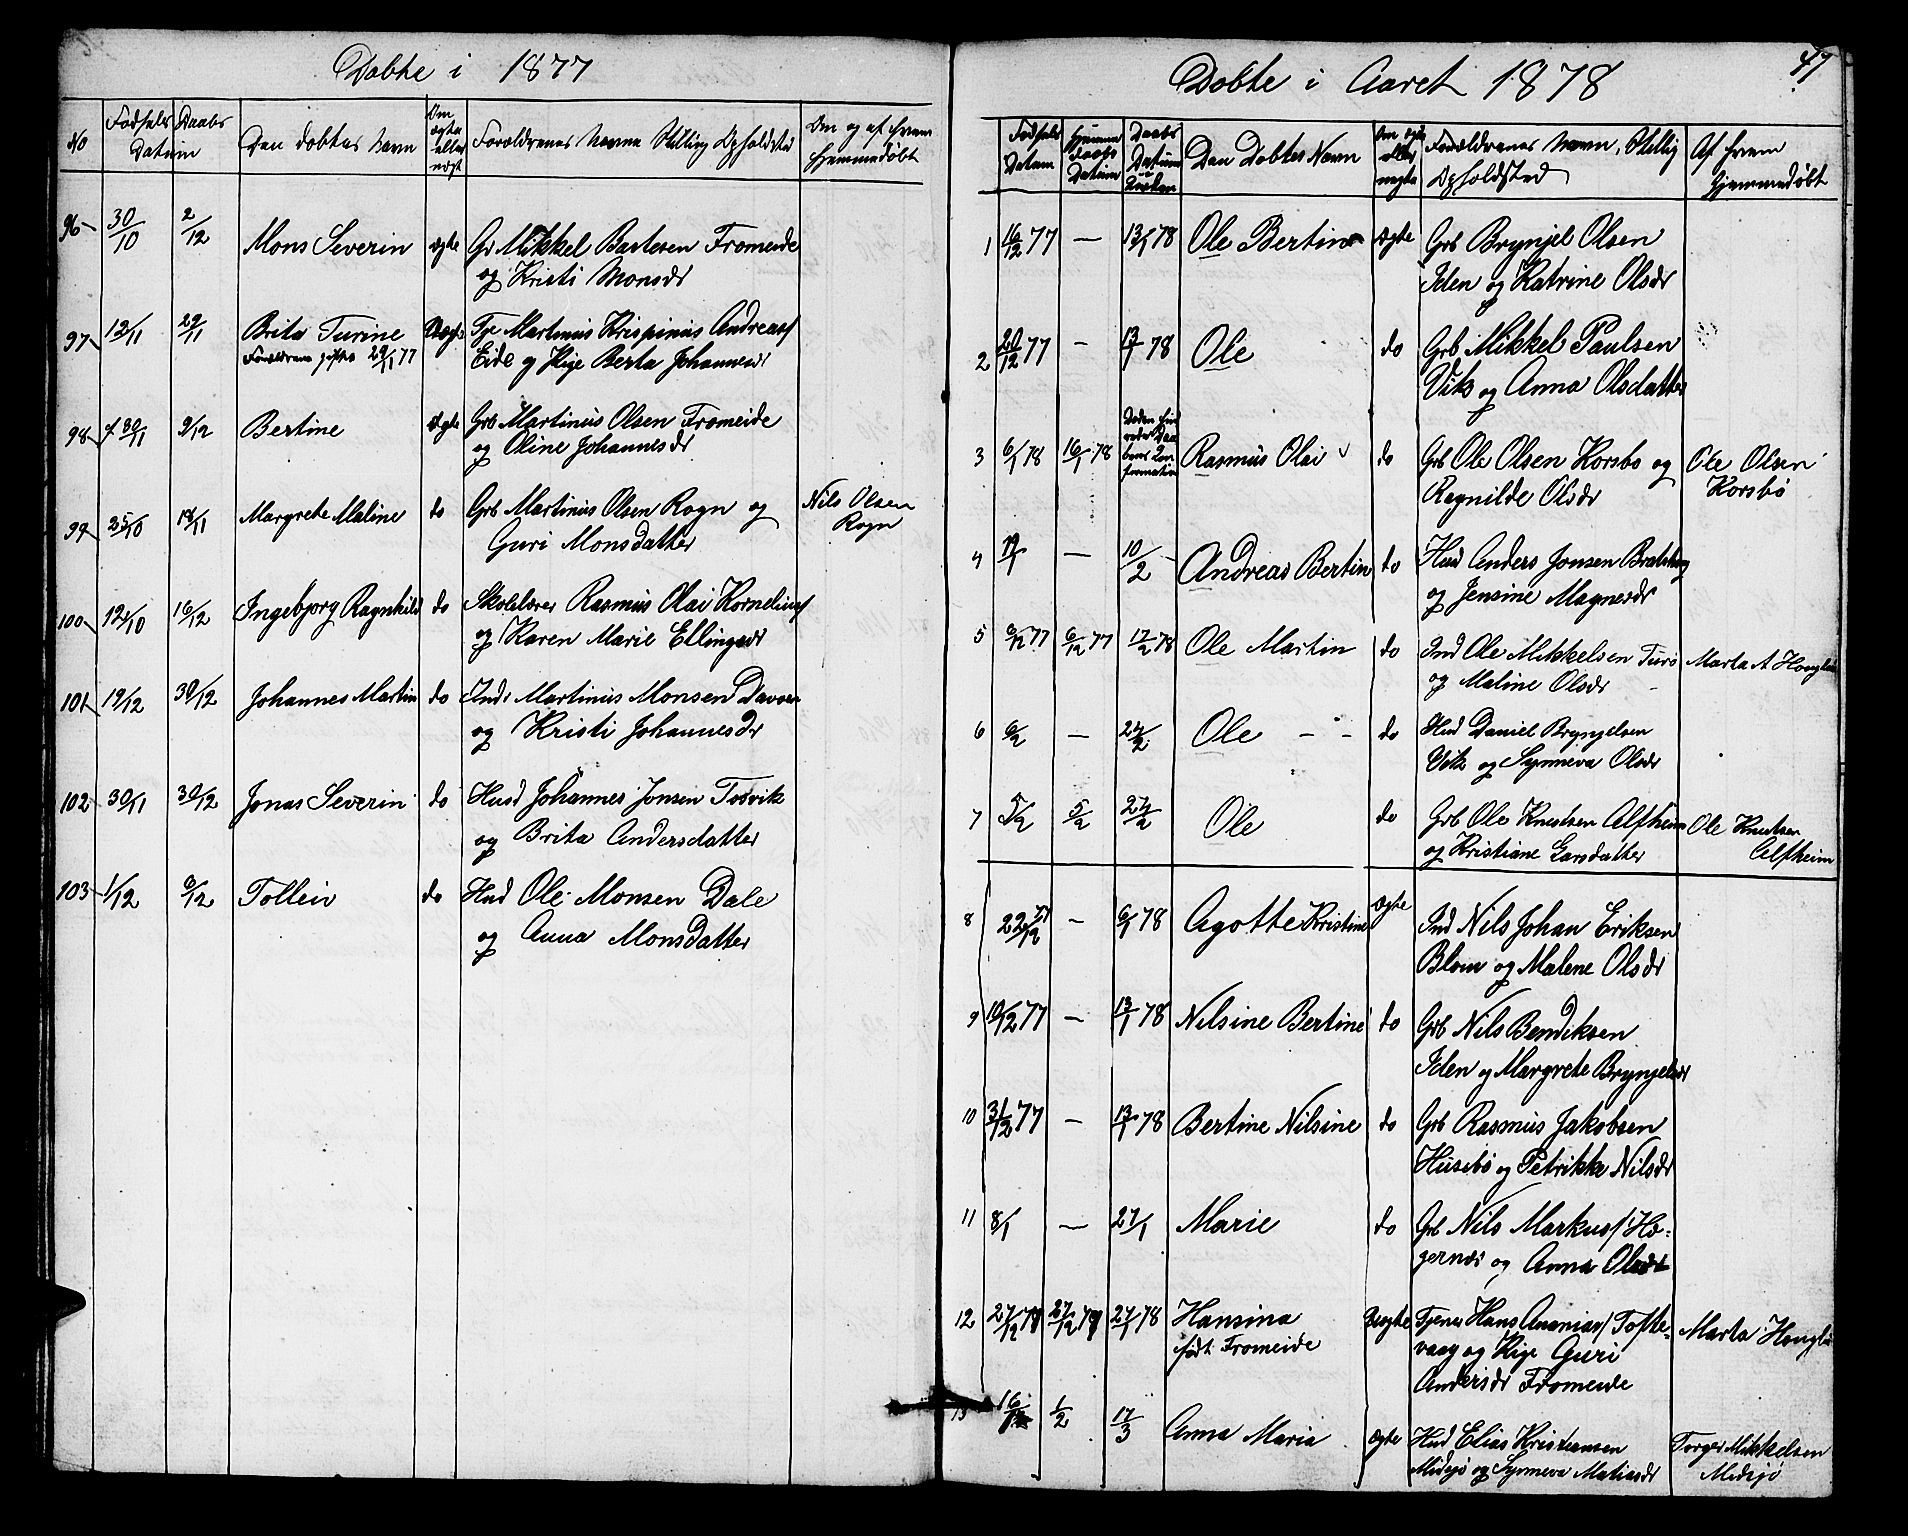 Døbte i 1877
No
Fødsels Daabs
Datum
Den døbtes Navn
Om
ægte
eller
uægt
Forældrenes Navne Stilling Opholdsted
Om og af hvem
hjemmedøbt
96 30/10 2/12 Mons Severin ægte Gr Mikkel Bartesen Fromeide
og Kristi Monsdr
97 12/11 29/11 Brita Turine Uægte Tje Martinus Krispinus Andreas/
Forældrene gifte 29/11 77 Eide og Pige Berta Johannesdr
98 30/11 9/12 Bertine ægte Grb Martinus Olsen Fromeide
og Oline Johannesdr
99 25/10 18/11 Margrete Maline do Grb Martinus Olsen Rogn og Nils Olsen
Guri Monsdatter Rogn
100 12/10 16/12 Ingebjorg Ragnhild do Skolelærer Rasmus Olai Kornelius/
og Karen Marie Ellingsdr
101 19/12 30/12 Johannes Martin do Inds Martinus Monsen
og Kristi Johannesdr
102 30/11 30/12 Jonas Severin do Husd Johannes Jonsen Tosvik
og Brita Andersdatter
103 1/12 9/12 Tollein do Hud Ole Monsen Dale
og Anna Monsdatter
47
Døbte i Aaret 1878
Fødsels
Datum
Hjemme
daabs
Datum
Daabs
Datum
i
Kirken
Den Døbtes Navn
Om ægte
eller
uægte
Forældrenes Navn, Stillig
Opholdsted
Af hvem
hjemmedøbt
1 16/12 77 — 13/1 78 Ole Bertin ægte Grb Brynjel Olsen
Iden og Katrine Olsdr
2 20/12 77 - 13/1 78 Ole do Grb Mikkel Paulsen
Vik og Anna Olsdatter
3 6/1 78 16/1 78 Døden hind
rede Daa
bens Con
formation Rasmus Olai do Grb Ole Olsen Korsbø og Ole Olsen
Ragnilde Olsdr Korsbø
4 — 10/2 Andreas Bertin do Hud Anders Jonsen
og Jensine Magnesdr
5 6/12 77 17/2 78 Ole Martin do Ind Ole Mikkelsen Turø Marta A
og Maline Olsdr
6 6/2 — 24/2 Ole - - do Hud Daniel Brynjelsen
Vik og Synneva Olsdr
7 5/2 5/2 24/2 Ole do Grb Ole Knutsen Alfheim Ole Knutsen
og Kristiane Larsdatter Alfheim
8 22/12 77 — 6/1 78 Agotte Kristine ægte Ind Nils Johan Eriksen
Blom og Malene Olsdr
9 10/12 77 — 13/1 78 Nilsine Bertine do Grb Nils Bendiksen
Iden og Margrete Brynjelsdr
10 31/12 77 — 13/1 78 Bertine Nilsine do Grb Rasmus Jakobsen
Husebø og Petrikke Nilsdr
11 8/1 — 27/1 Marie do Grb Nils Markus/ Hæ-
gernæs og Anna Olsdr
12 27/12 77 27/12 77 27/1 78 Hansina Uægte Tjener Hans Ananias/ Tofte- Marta
født Fromeide vaag og Pige Guri
Andersdr Fromeide
13 1/2 17/3 Anna Maria ægte Hud Elias Kristiansen Torger Mikkelsen
Midsjø og Synneva Matiasdr Midsjø